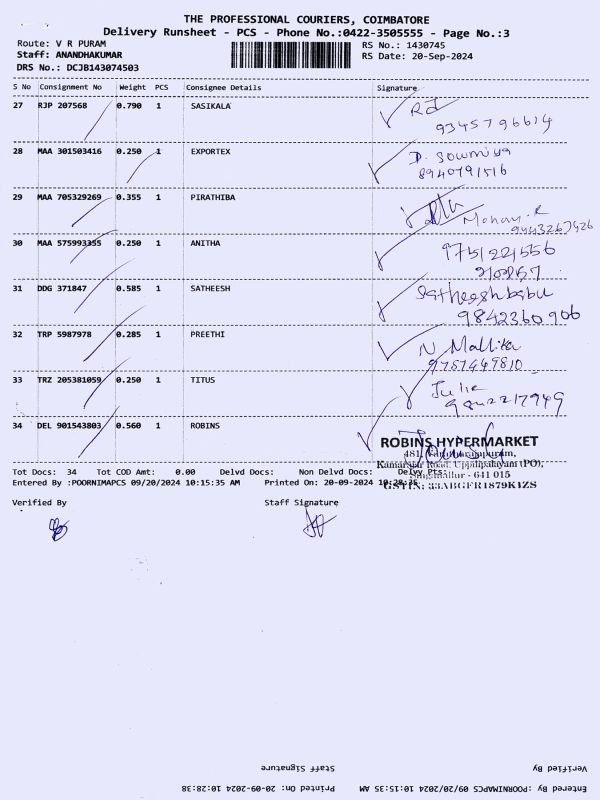 THE PROFESSIONAL COURIERS, COIMBATORE
Delivery Runsheet - PCS - Phone No.:0422-3505555 - Page No.:3
Route: V R PURAM
RS No.: 1430745
Staff: ANANDHAKUMAR
RS Date: 20-Sep-2024
DRS No.: DCJB143074503
S No Consignment No Weight PCS Consignee Details Signature
27 RJP 207568 0.790 1 SASIKALA
9345796614
28 MAA 301503416 0.250 1 EXPORTEX D. Sowmiya
8940791516
29 MAA 705329269 0.355 1 PIRATHIBA Mohan. R
9443267426
30 MAA 575993355 0.250 1 ANITHA 9751221556
31 DDG 371847 0.585 1 SATHEESH Satheeshbabu
9842360906
32 TRP 5987978 0.285 1 PREETHI N Mallika
9787449810
33 TRZ 205381059 0.250 1 TITUS Julie
9842217949
34 DEL 901543803 0.560 1 ROBINS
ROBINS HYPERMARKET
Kamarajar Road, Uppilipalayam (PO),
Singanallur - 641 015
GSTIN: 33ABGFR1879K1ZS
Tot Docs: 34 Tot COD Amt: 0.00 Delvd Docs: Non Delvd Docs: Delvy Pts:
Entered By :POORNIMAPCS 09/20/2024 10:15:35 AM Printed On: 20-09-2024 10:28:35
Verified By Staff Signature
Staff Signature Verified By
Printed On: 20-09-2024 10:28:38 Entered By :POORNIMAPCS 09/20/2024 10:15:35 AM